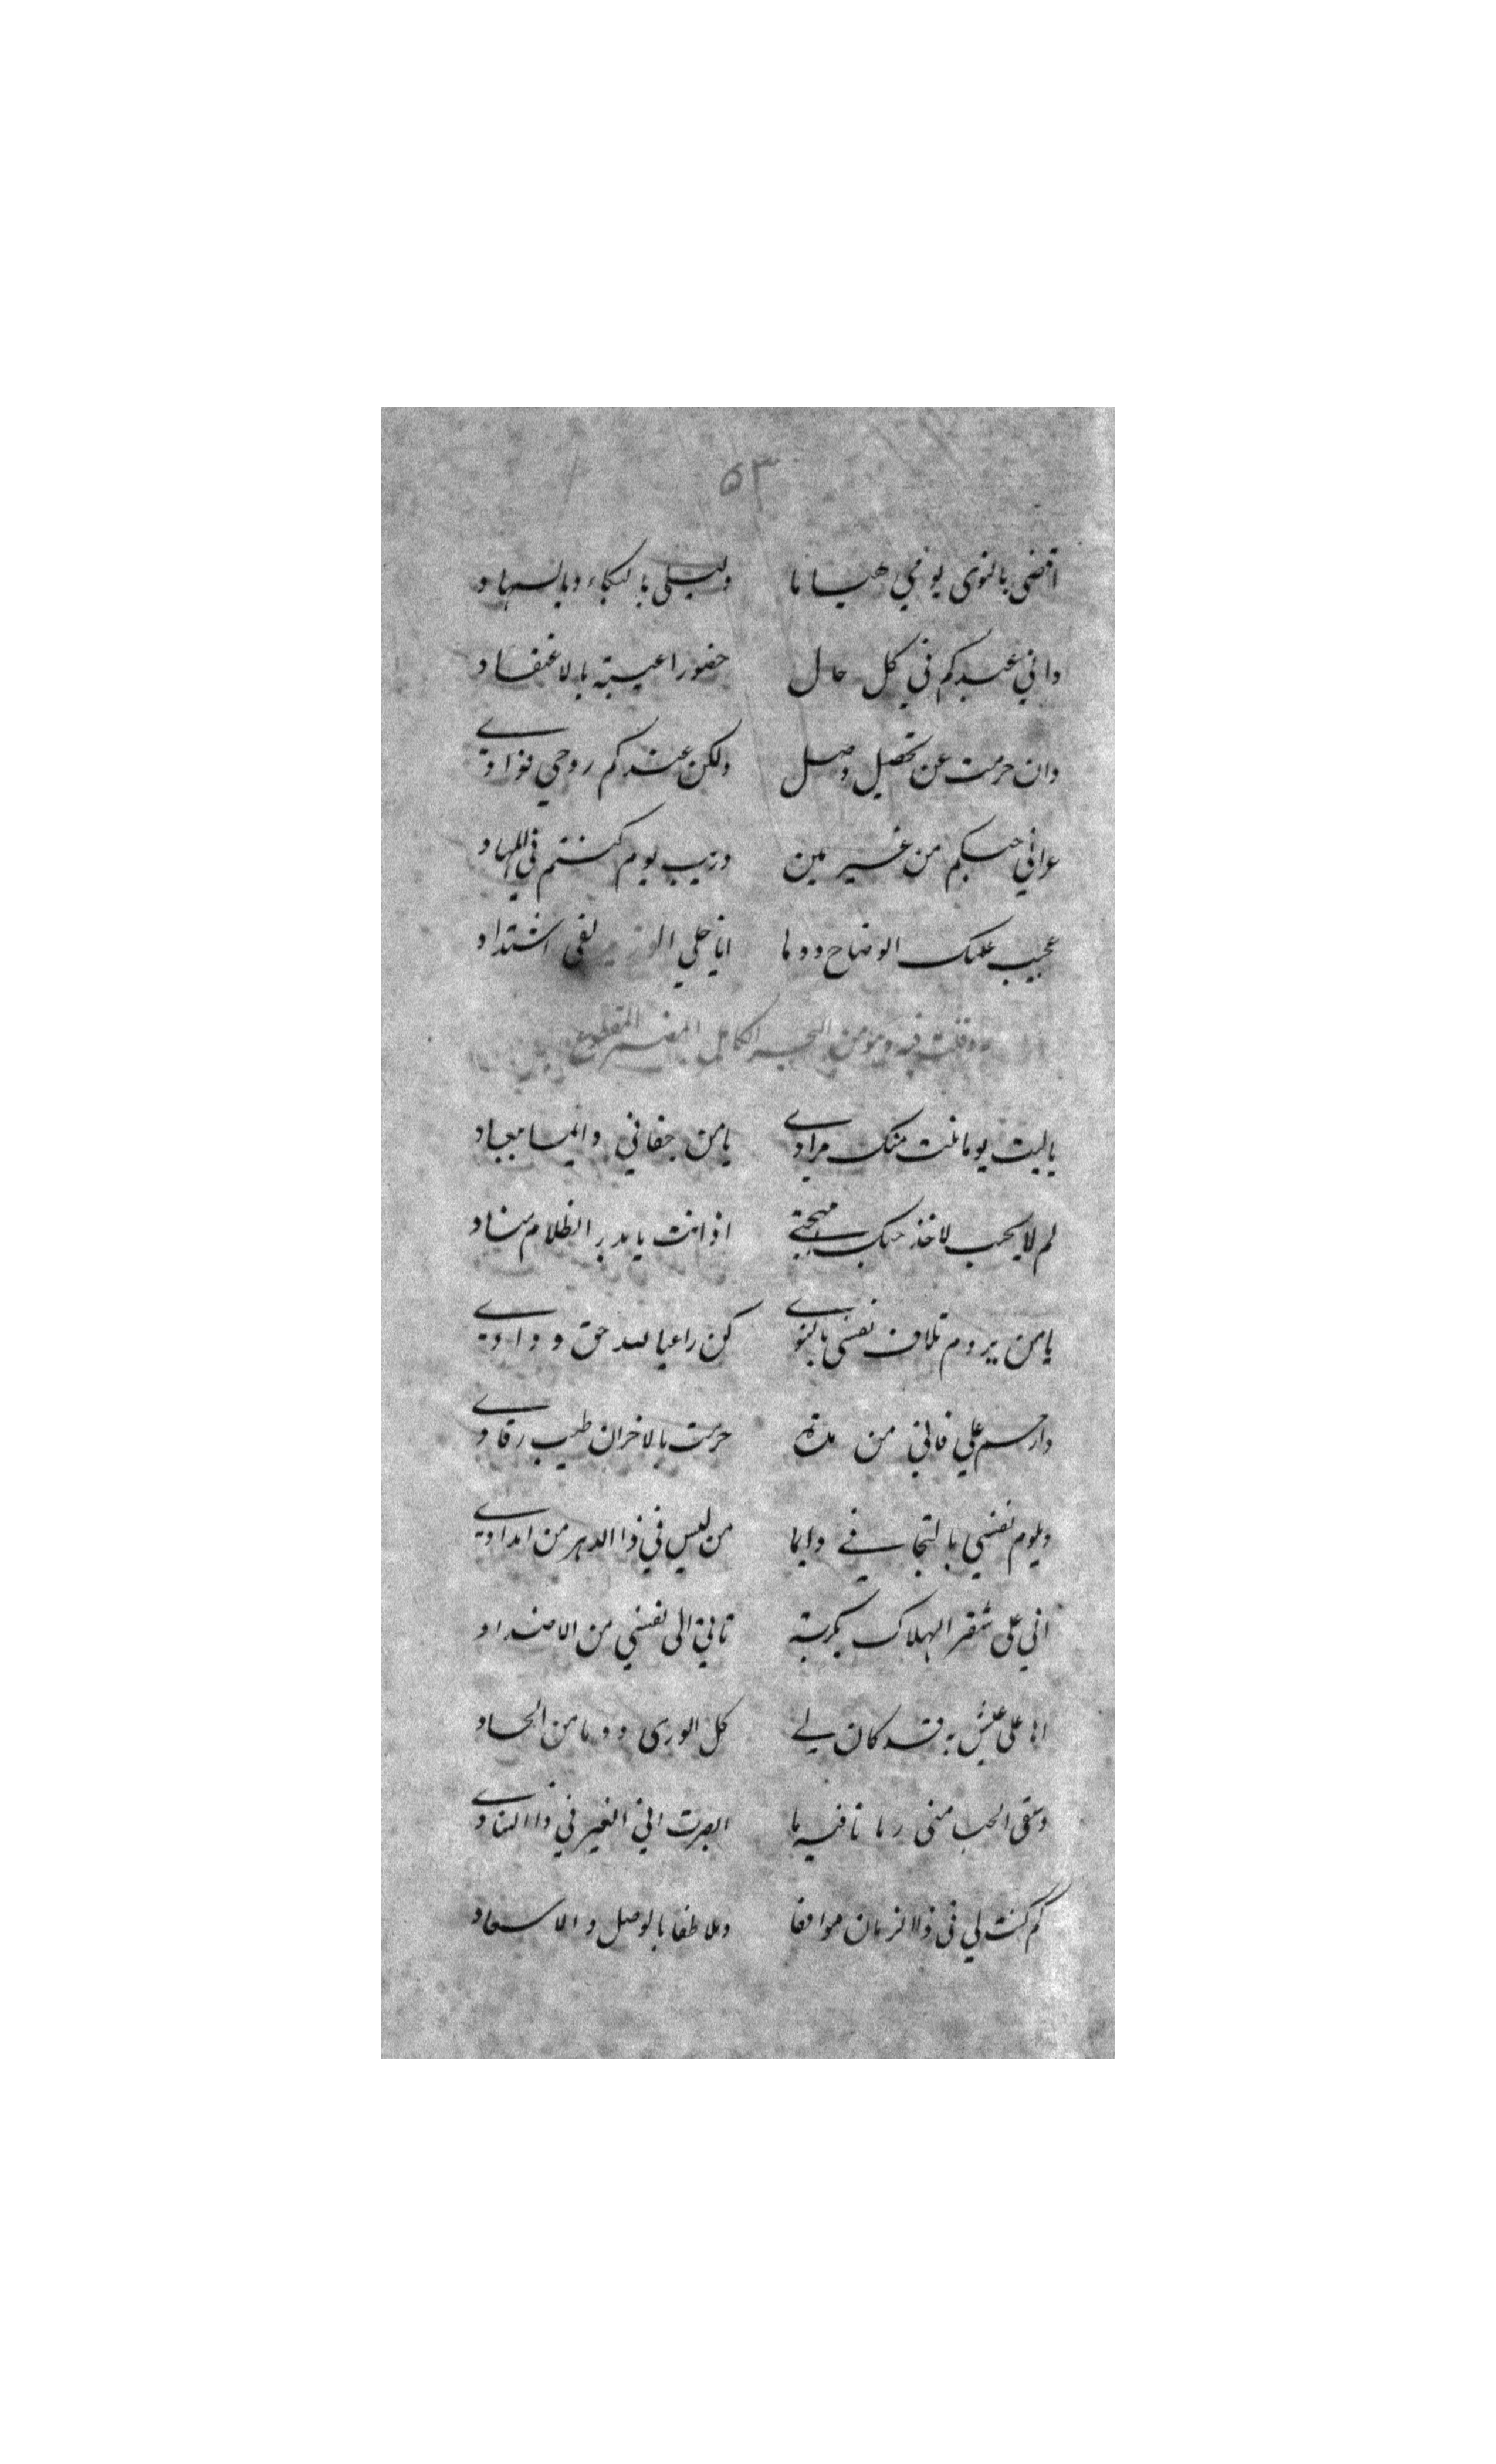 ٥٣
اقضى بالنوى يومي هيانا وليلى بالبكاء وبالسهاد
واني عبدكم في كل حال حضورا غيبة بالاعتقاد
وان حرمت عن تحصيل وصل ولكن عندكم روحي فوادي
عراني حبكم من غير مين وزيب يوم كنتم في المهاد
عجيب علمك الوضاح دوما اناخلي لفي اشتداد
وقلت فيه وهو من البحر الكامل المقطوع
ياليت يوما نلت منك مرادي يامن جفاني دايما ببعاد
لم لا يحب لاخذ حبك مهجتي اذ انت يابدر الظلام سناد
يامن يروم تلاف نفسي بالنوى كن راعيا لله حق ودادي
وارحم علي فانني من مدة حرمت بالاحزان طيب رقادي
ويلوم نفسي بالتجافي دايما من ليس في ذا الدهر من امدادي
اني على شفر الهلاك بكربة تاتي الى نفسي من الاضداد
اها على عيش به قد كان لي كل الورى دوما من الحساد
وسقى الحب منى زمانا فيه ما ابصرت اني الغير في ذا النادي
كم كنت لي في ذا الزمان موافقا وملاطفا بالوصل والاسعاد